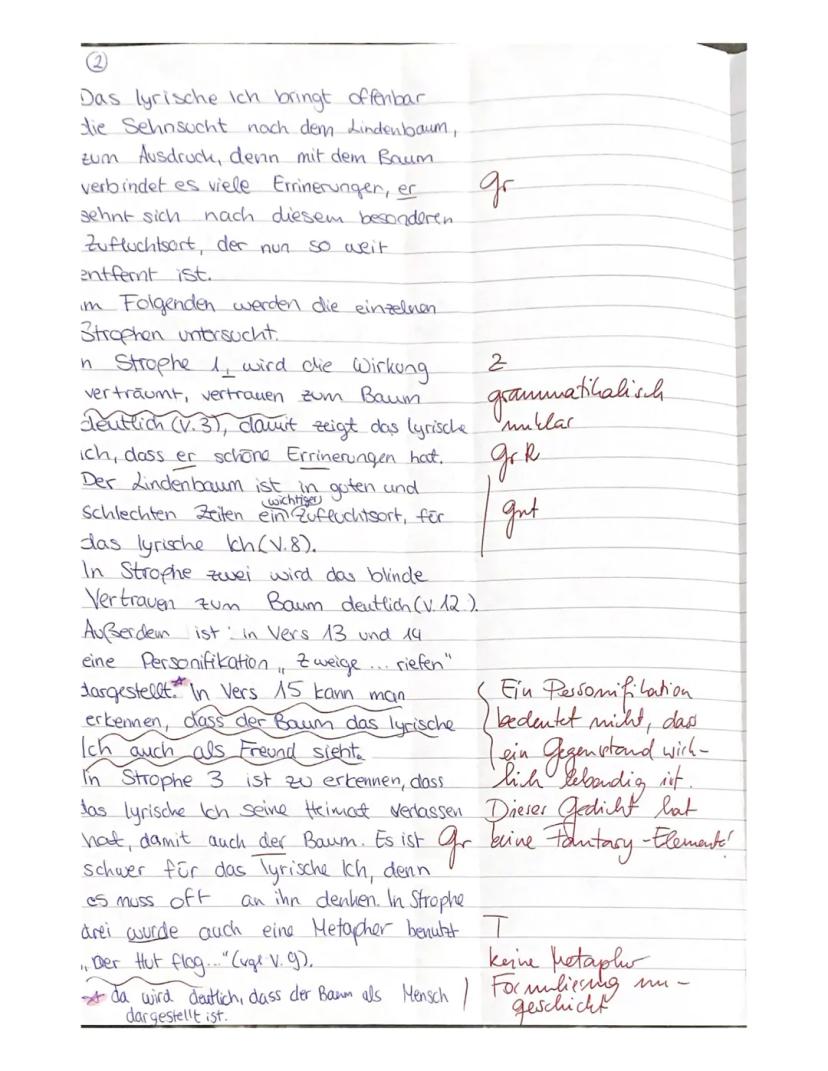 2
Das lyrische Ich bringt offenbar
die Sehnsucht nach dem Lindenbaum,
zum Ausdruck, denn mit dem Baum
verbindet es viele Errinerungen, er
gr
sehnt sich nach diesem besonderen
Zufluchtsort, der nun so weit
entfernt ist.
im Folgenden werden die einzelnen
Strophen untersucht.
n Strophe 1, wird die Wirkung
verträumt, vertrauen zum Baum
grammatikalisch
deutlich (V. 3), damit zeigt das lyrische
unklar
ich, dass er schöne Errinerungen hat.
gr R
Der Lindenbaum ist in guten und
wichtiger
schlechten Zeiten ein Zufluchtsort, für
gut
das lyrische Ich (V. 8).
In Strophe zwei wird das blinde
Vertrauen zum Baum deutlich (V. 12.).
Außerdem ist in Vers 13 und 14
eine Personifikation „Zweige ... riefen"
dargestellt.* In Vers 15 kann man
Ein Personifikation
erkennen, dass der Baum das lyrische
bedeutet nicht, das
Ich auch als Freund sieht.
ein Gegenstand wirk-
In Strophe 3 ist zu erkennen, dass
lich lebendig ist.
das lyrische Ich seine Heimat verlassen
Dieses Gedicht hat
hat, damit auch der Baum. Es ist
gr
keine Fantasy-Elemente!
schwer für das lyrische Ich, denn
es muss oft an ihn denken. In Strophe
drei wurde auch eine Metapher benutzt
T
„Der Hut flog..." (vgl V. 9).
keine Metapher
* da wird deutlich, dass der Baum als Mensch
Formulierung un-
dargestellt ist.
geschickt